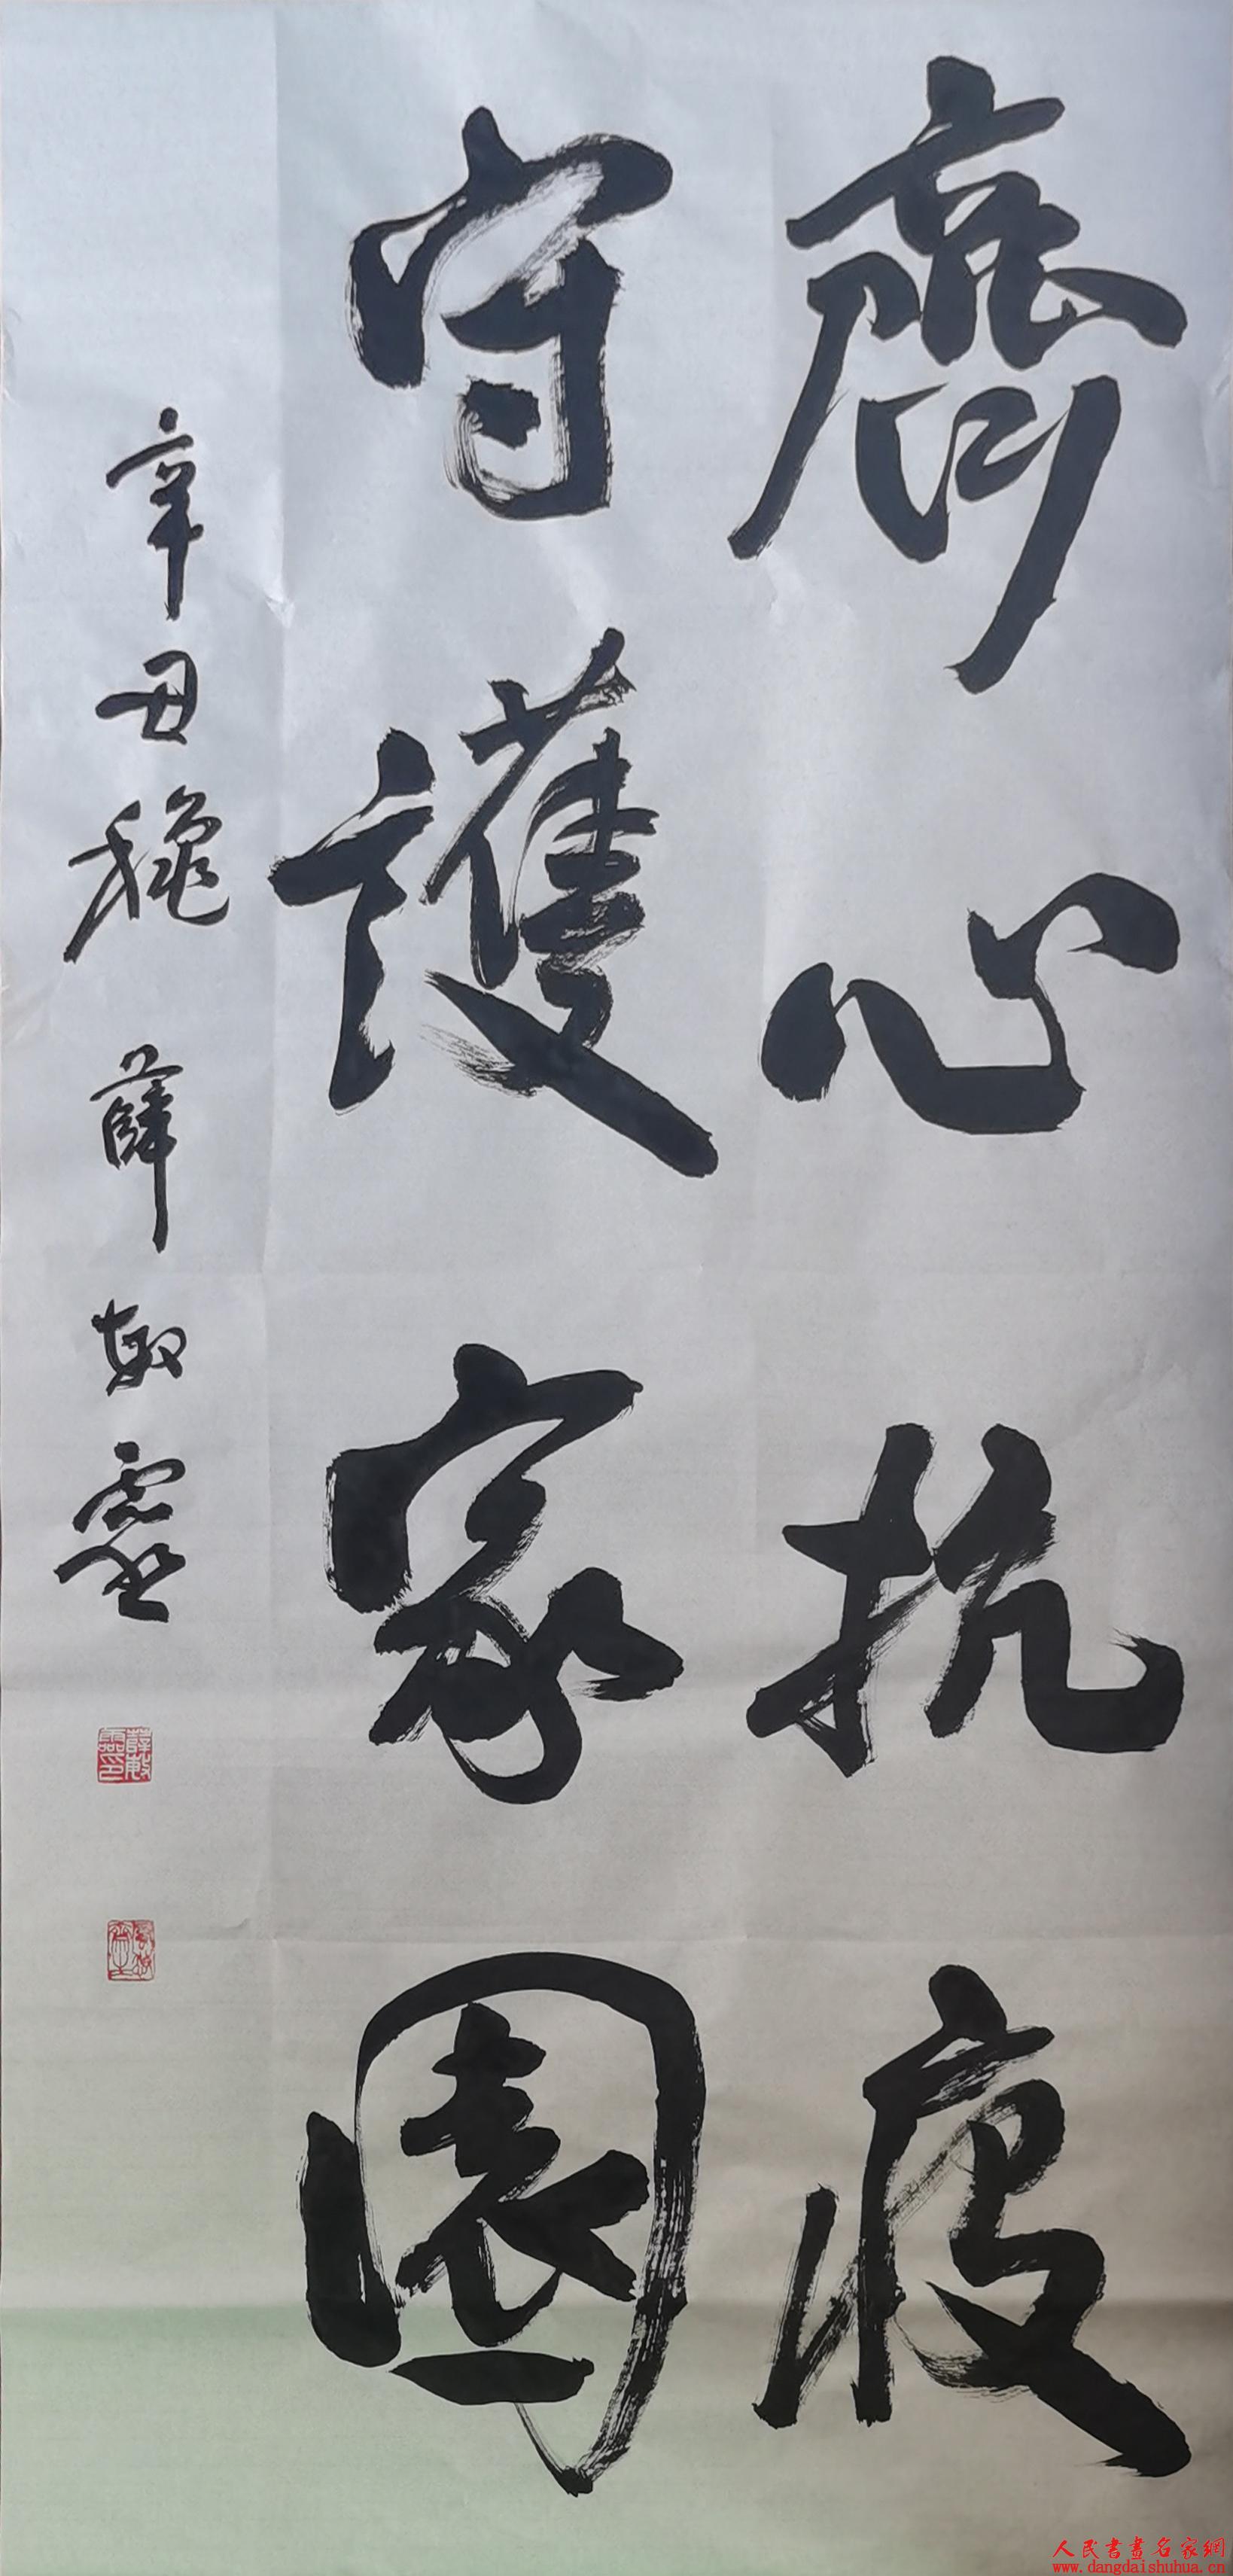 齊心抗疫
守護家園
辛丑穐 薛敏靈
薛敏靈印
人民書畫名家網
www.dangdaishuhua.cn